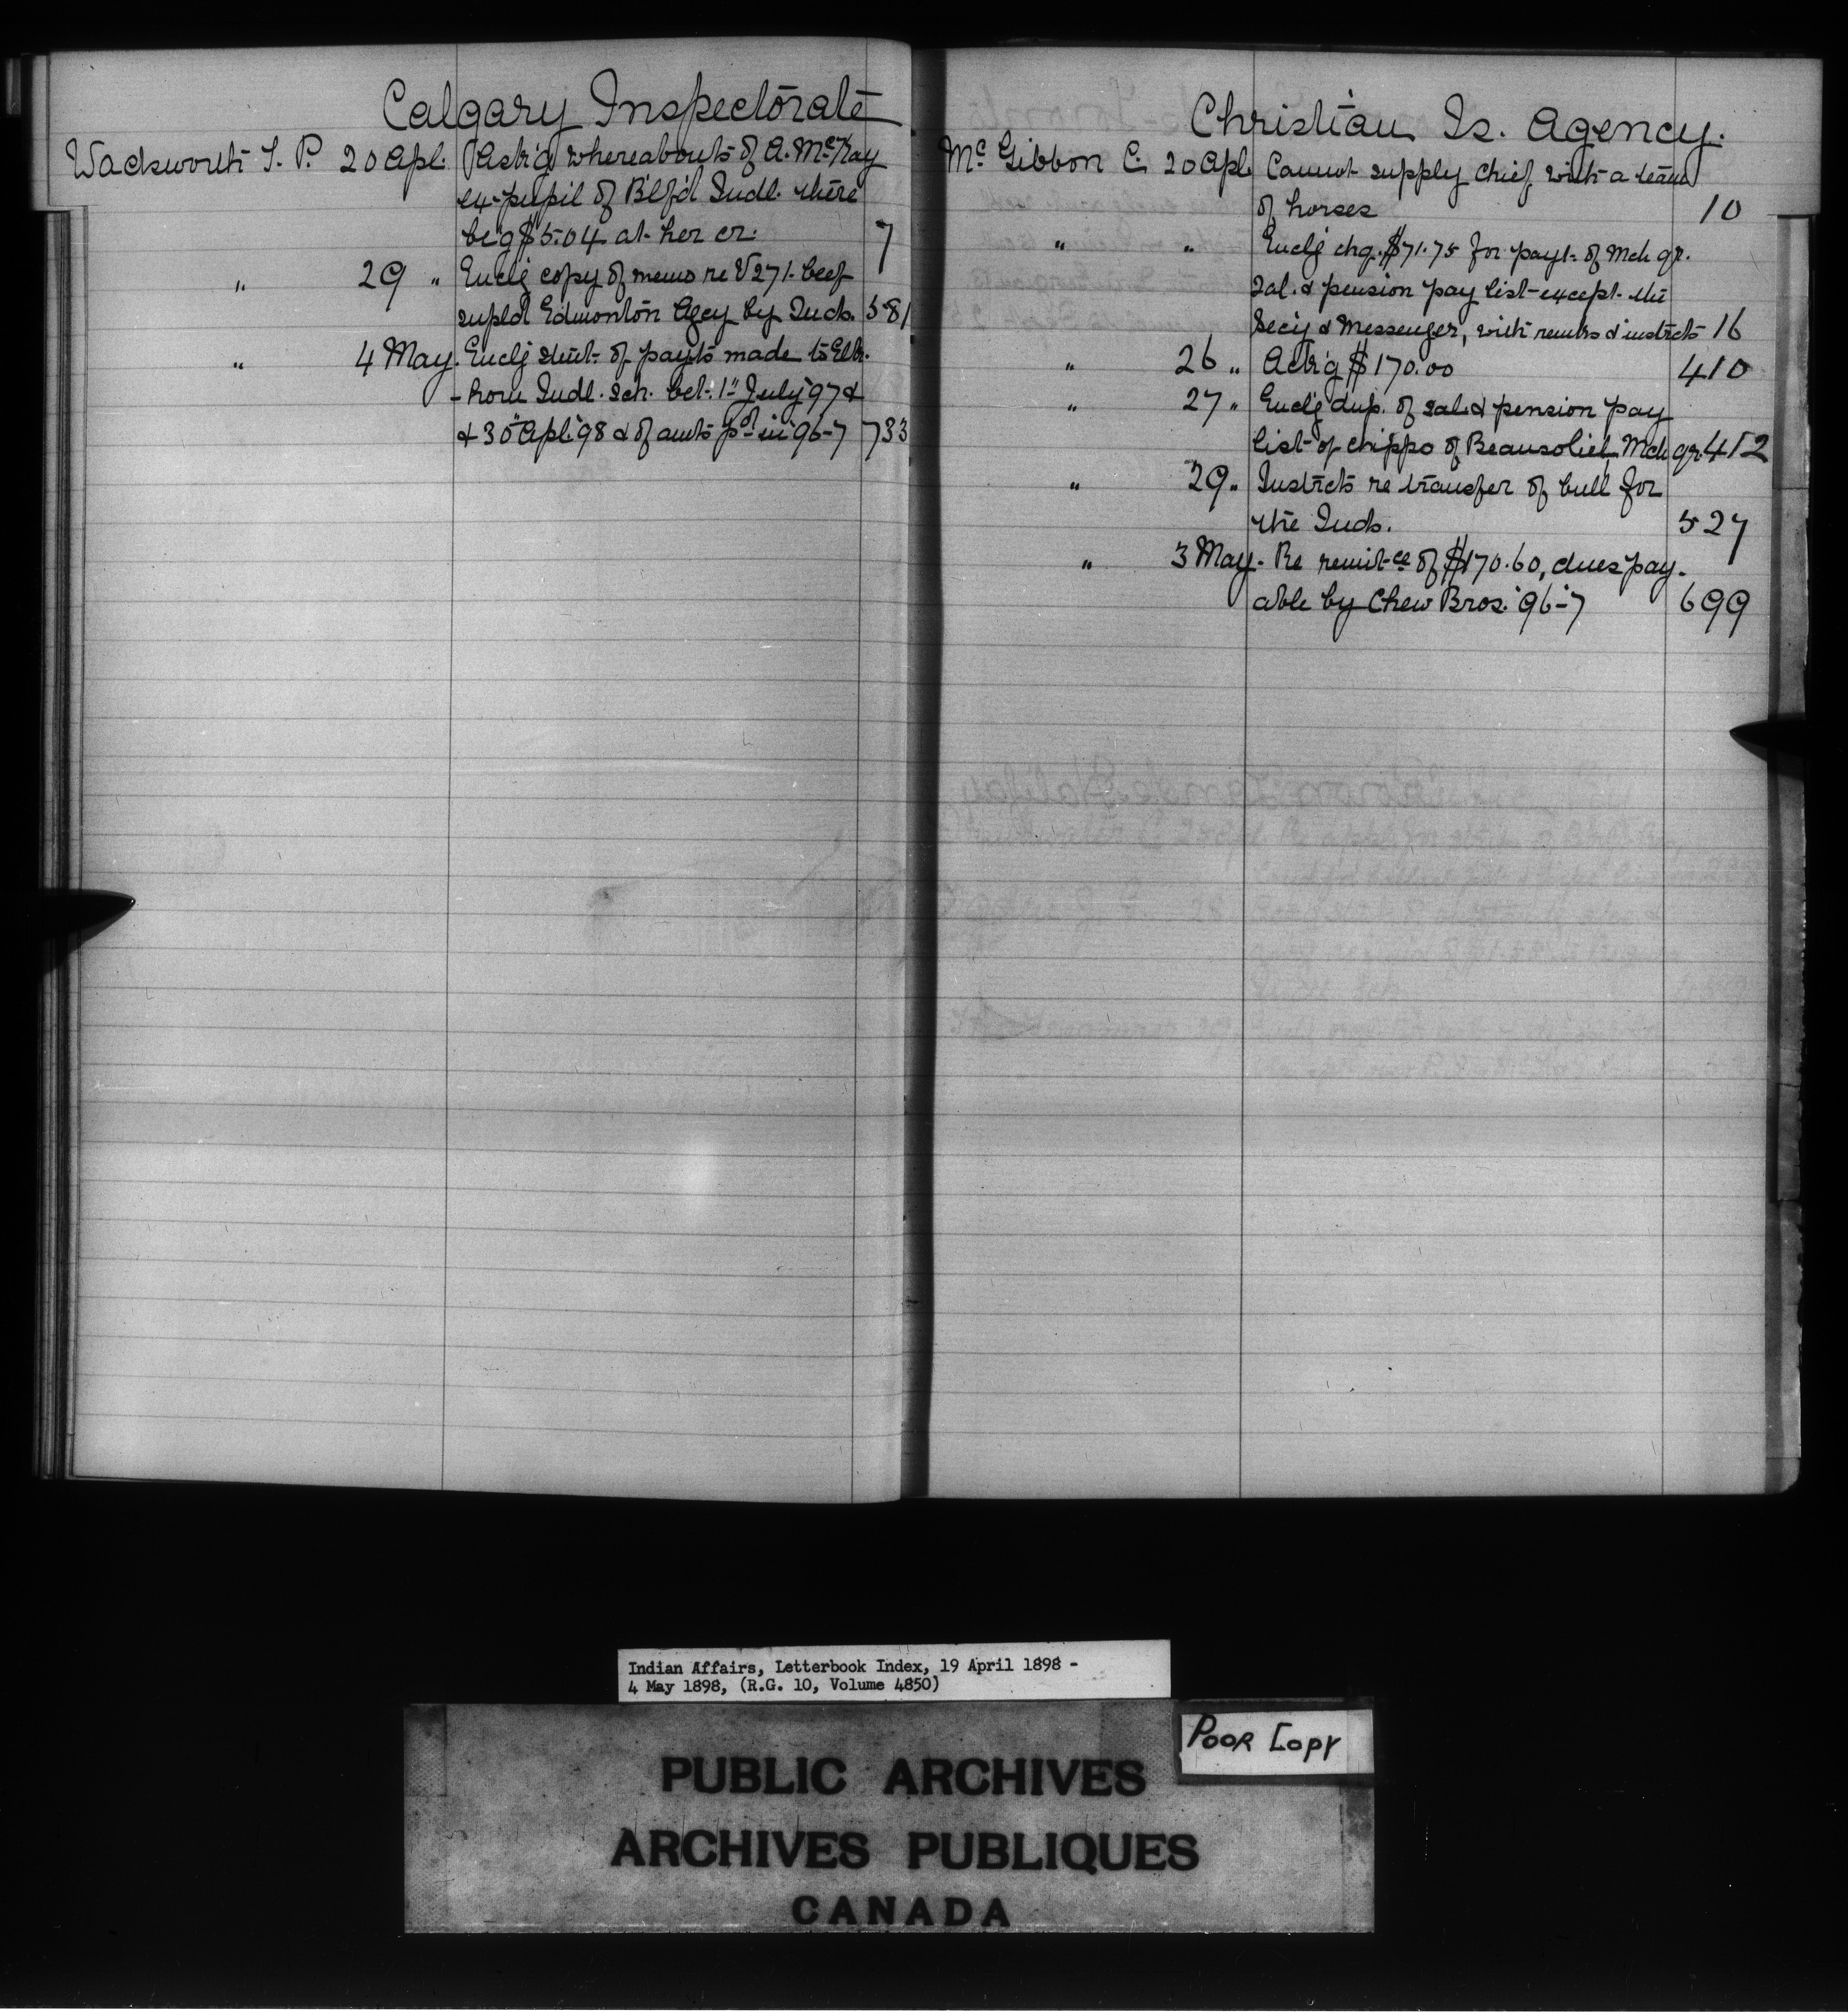 Calgary Inspectorate
Wadsworth T. P. 20 Apl. Ask'g whereabouts of A. McKay
ex-pupil of B'lf'd Indl. there
be'g $5.04 at her cr. 7
" 29 " Enclg copy of memo re V271. beef
supld Edmonton Agcy by Inds. 581
" 4 May. Enclg stmt. of payts made to Elk-
-horn Indl. Sch. bet. 1st July '97 &
& 30th Apl. '98 & of amts pd in '96-7 733
Christian Is. Agency.
Mc Gibbon C. 20 Apl. Cannot supply chief with a team
of horses 10
" " Enclg chq. $71.75 for payt. of Mch qr.
sal. & pension pay list except the
Secy & Messenger, with remrks & instrcts 16
" 26 " Ack'g $170.00 410
" 27 " Enclg dup. of sal. & pension pay
list of chipps of Beausoliel, Mch qr. 452
" 29 " Instrcts re transfer of bull for
the Inds. 527
" 3 May. Re remit-ce of $170.60, dues pay-
able by Chew Bros. '96-7 699
Indian Affairs, Letterbook Index, 19 April 1898 -
4 May 1898, (R.G. 10, Volume 4850)
POOR COPY
PUBLIC ARCHIVES
ARCHIVES PUBLIQUES
CANADA